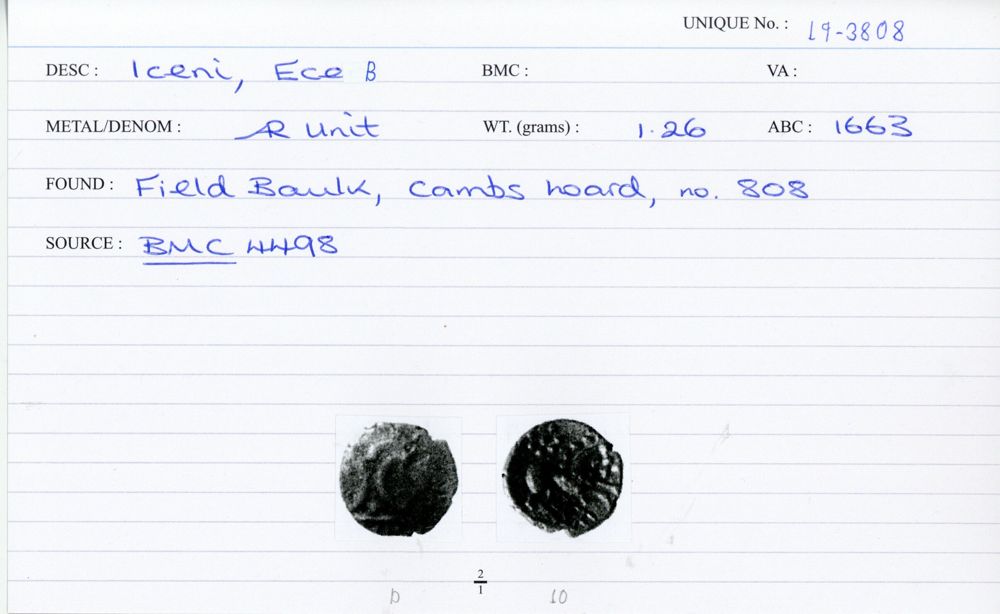 UNIQUE No. : 19-3808
DESC : Iceni, Ece B BMC : VA :
METAL/DENOM : AR Unit WT. (grams) : 1.26 ABC : 1663
FOUND : Field Baulk, Cambs hoard, no. 808
SOURCE : BMC 4498
2
1
D 10